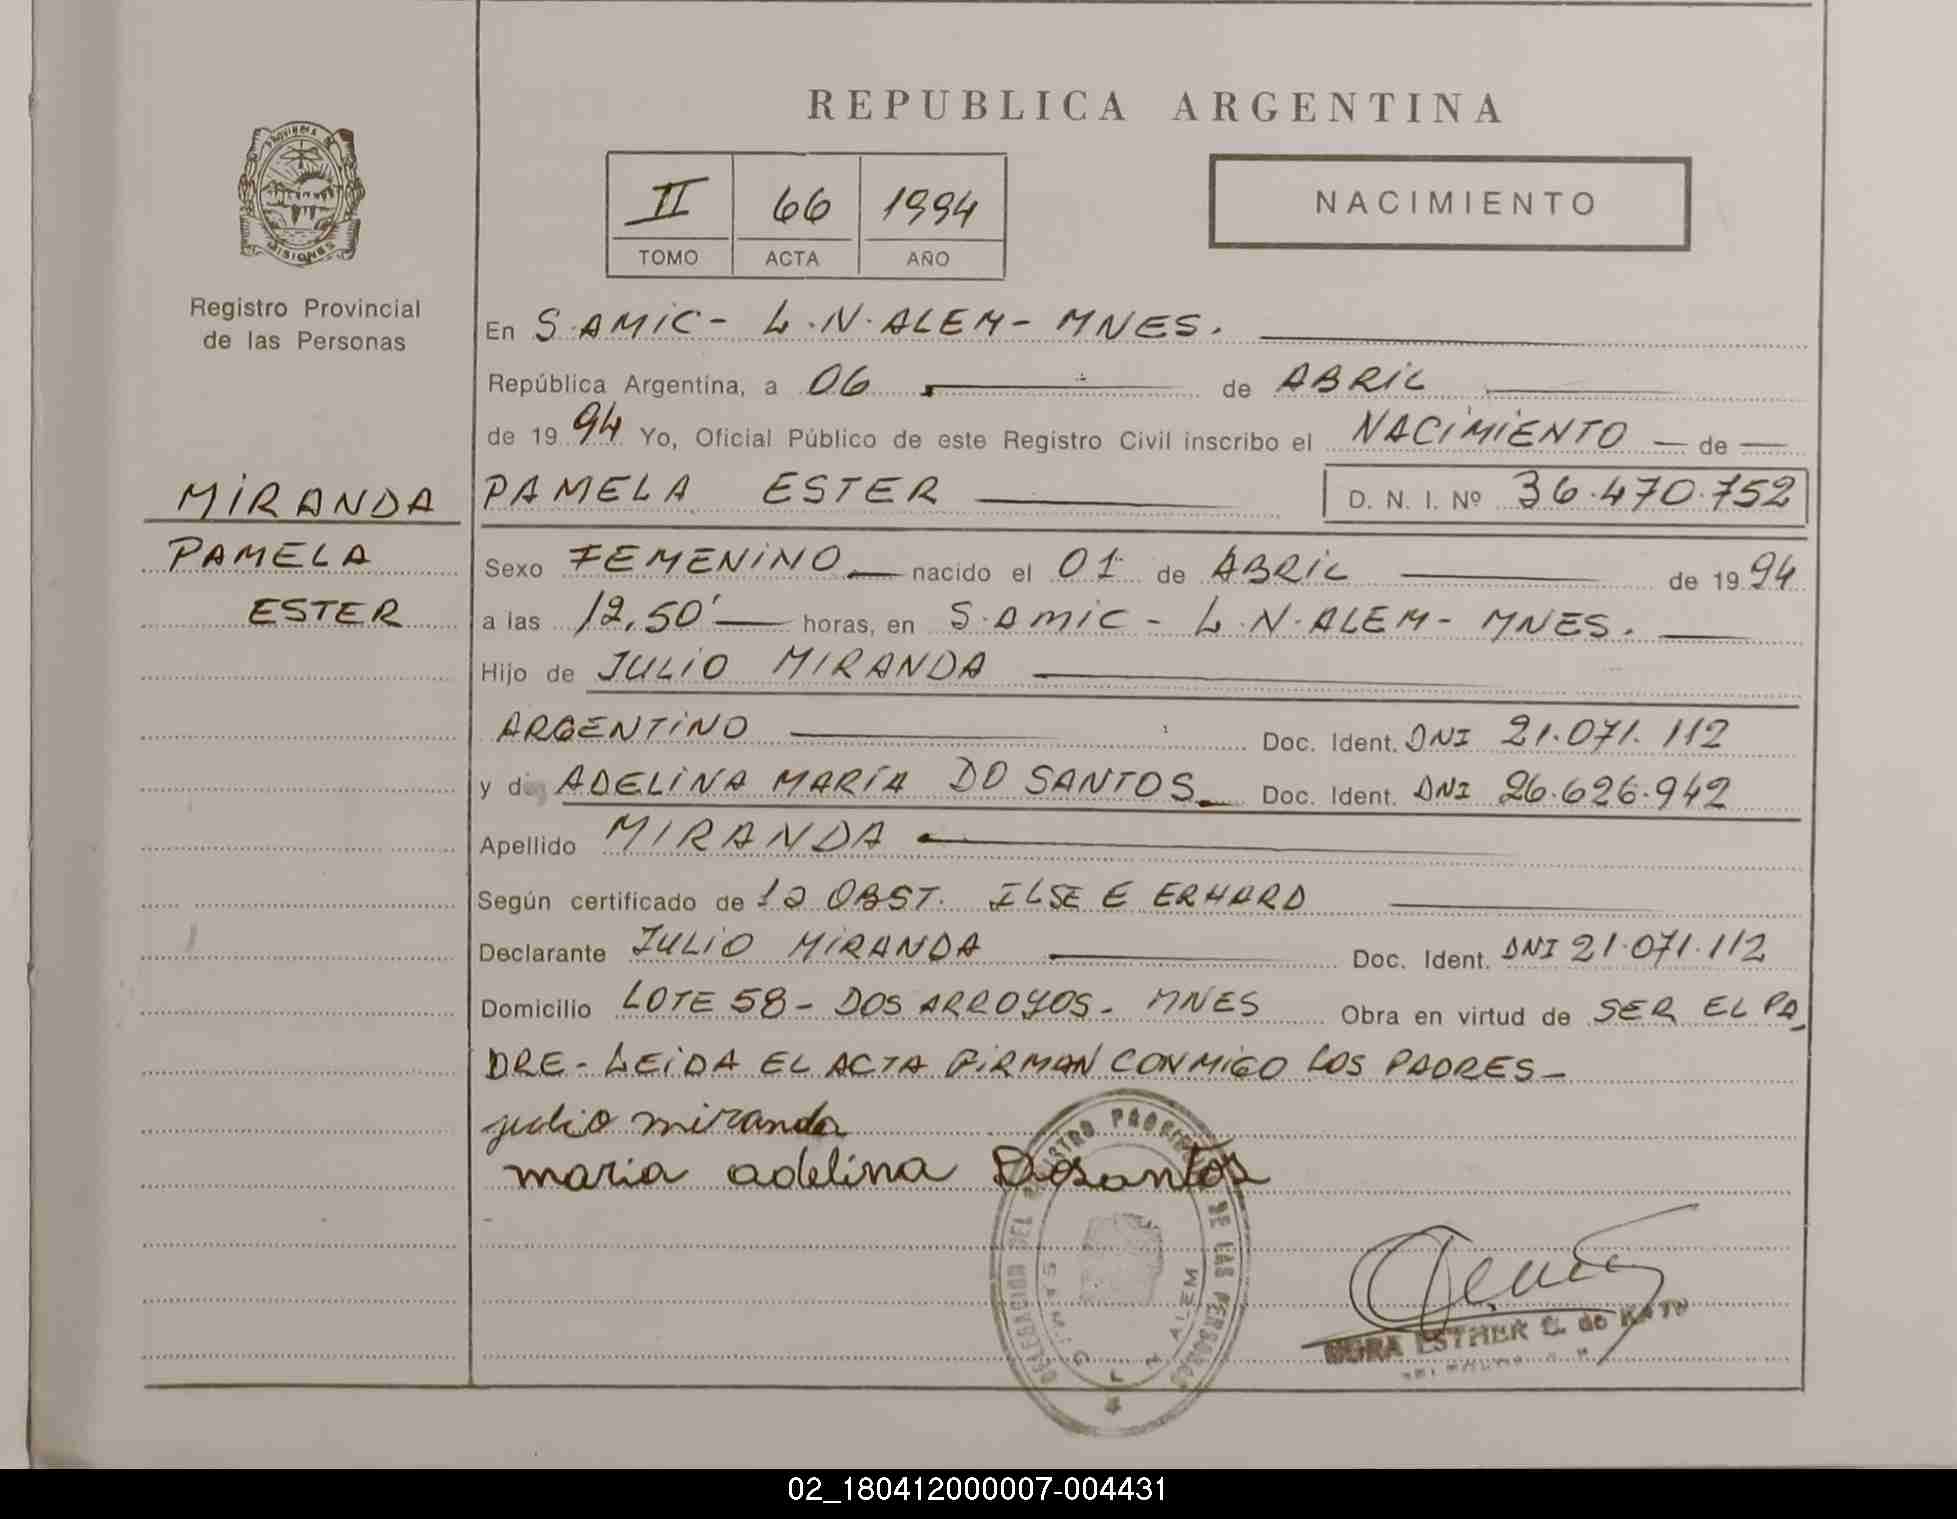 REPUBLICA ARGENTINA
PROVINCIA DE
MISIONES
Registro Provincial
de las Personas
II 66 1994
TOMO ACTA AÑO
NACIMIENTO
En S.AMIC- L.N.ALEM- MNES.
República Argentina, a 06 de ABRIL
de 19 94 Yo, Oficial Público de este Registro Civil inscribo el NACIMIENTO de
MIRANDA
PAMELA
ESTER
PAMELA ESTER D. N. I. Nº 36.470.752
Sexo FEMENINO nacido el 01 de ABRIL de 19 94
a las 12,50' horas, en S.AMIC - L.N.ALEM- MNES.
Hijo de JULIO MIRANDA
ARGENTINO Doc. Ident. DNI 21.071.112
y de ADELINA MARIA DO SANTOS Doc. Ident. DNI 26.626.942
Apellido MIRANDA
Según certificado de la OBST. ILSE E ERHARD
Declarante JULIO MIRANDA Doc. Ident. DNI 21.071.112
Domicilio LOTE 58- DOS ARROYOS- MNES Obra en virtud de SER EL PA
DRE- LEIDA EL ACTA FIRMAN CONMIGO LOS PADRES-
julio miranda
maria adelina Dosantos
DELEGACION DEL REGISTRO PROVINCIAL DE LAS PERSONAS
L N ALEM
ESTHER
02_180412000007-004431